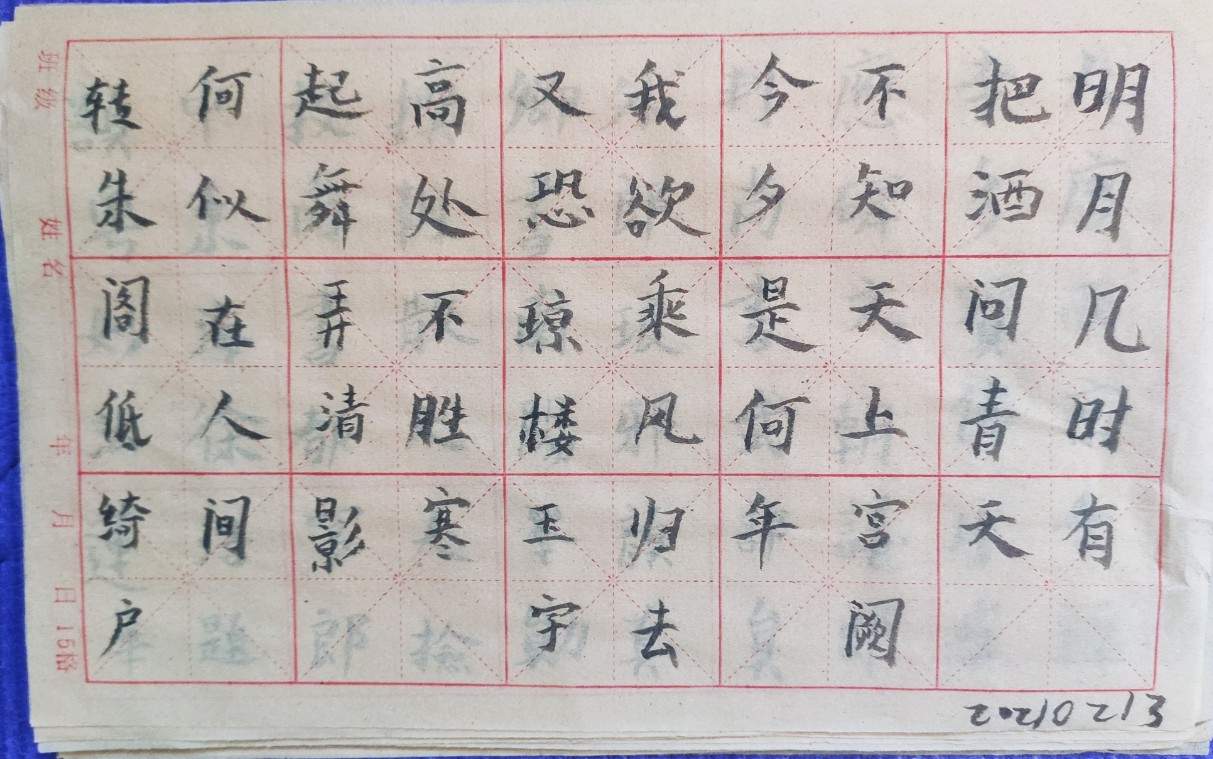 明月几时有
把酒问青天
不知天上宫阙
今夕是何年
我欲乘风归去
又恐琼楼玉宇
高处不胜寒
起舞弄清影
何似在人间
转朱阁低绮户
班级 姓名 年 月 日 15格
20210213